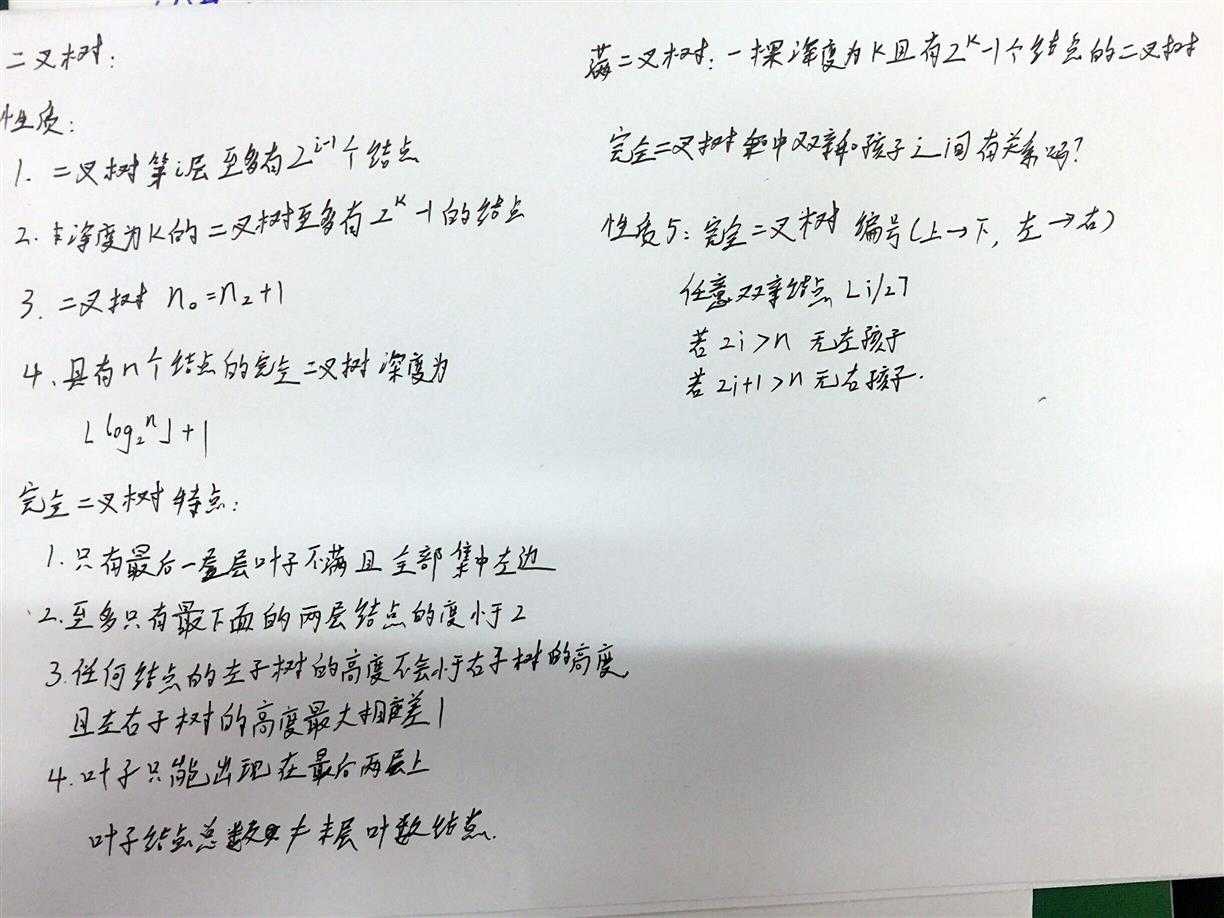 二叉树:
性质:
1. 二叉树第i层至多有2^{i-1}个结点
2. 深度为K的二叉树至多有2^K-1的结点
3. 二叉树 n₀=n₂+1
4. 具有n个结点的完全二叉树深度为
⌊log₂ⁿ⌋+1
完全二叉树特点:
1. 只有最后一层叶子不满且全部集中左边
2. 至多只有最下面的两层结点的度小于2
3. 任何结点的左子树的高度不会小于右子树的高度
且左右子树的高度最大相差1
4. 叶子只能出现在最后两层上
叶子结点总数≠末层叶数结点.
满二叉树: 一棵深度为K且有2^K-1个结点的二叉树
完全二叉树中双亲和孩子之间有关系吗?
性质5: 完全二叉树 编号(上→下, 左→右)
任意双亲结点 ⌊i/2⌉
若 2i>n 无左孩子
若 2i+1>n 无右孩子.